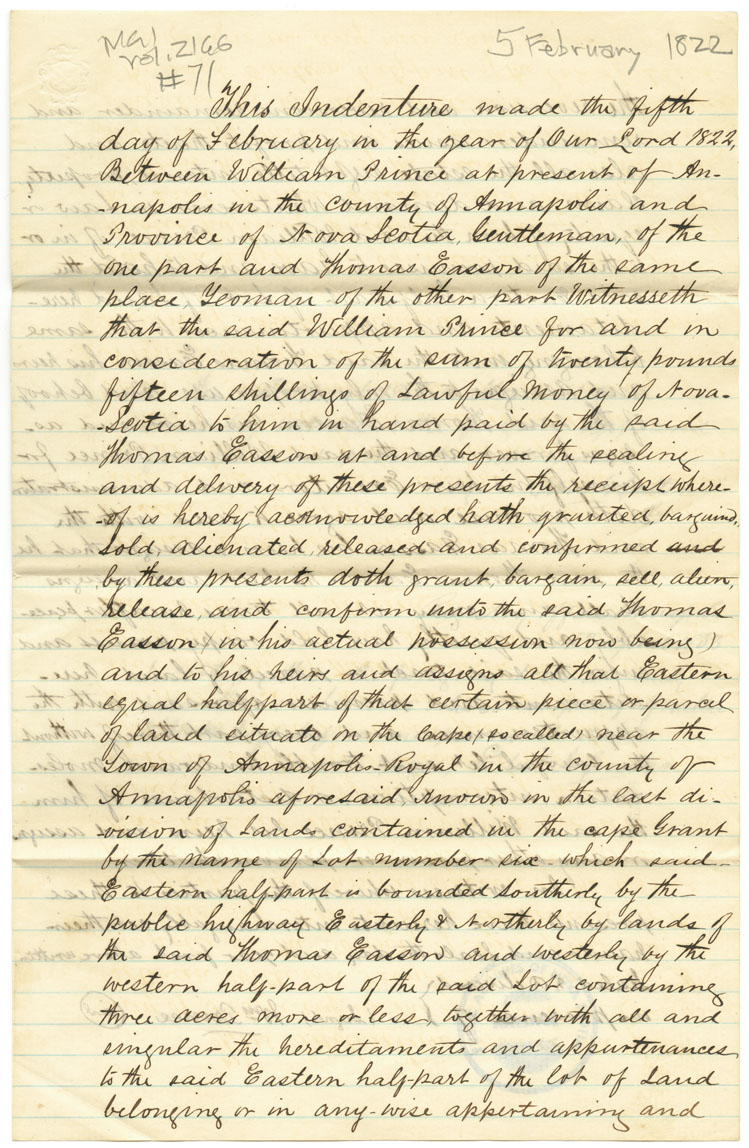 MG1
vol. 2166
#71
5 February 1822
This Indenture made the fifth
day of February in the year of Our Lord 1822,
Between William Prince at present of An-
-napolis in the county of Annapolis and
Province of Nova Scotia, Gentleman, of the
one part and Thomas Easson of the same
place, Yeoman of the other part Witnesseth
that the said William Prince for and in
consideration of the sum of twenty pounds
fifteen shillings of Lawful Money of Nova-
-Scotia to him in hand paid by the said
Thomas Easson at and before the sealing
and delivery of these presents the receipt where-
-of is hereby acknowledged hath granted, bargained,
sold, alienated, released and confirmed and
by these presents doth grant, bargain, sell, alien,
release, and confirm unto the said Thomas
Easson (in his actual possession now being)
and to his heirs and assigns all that Eastern
equal half-part of that certain piece or parcel
of land situate on the Cape (so called) near the
Town of Annapolis-Royal in the county of
Annapolis aforesaid known in the last di-
-vision of Lands contained in the cape Grant
by the name of Lot number six which said
Eastern half-part is bounded Southerly by the
public highway Easterly & Northerly by lands of
the said Thomas Easson and westerly by the
western half-part of the said Lot containing
three acres more or less, together with all and
singular the hereditaments and appurtenances
to the said Eastern half-part of the lot of Land
belonging or in any-wise appertaining and